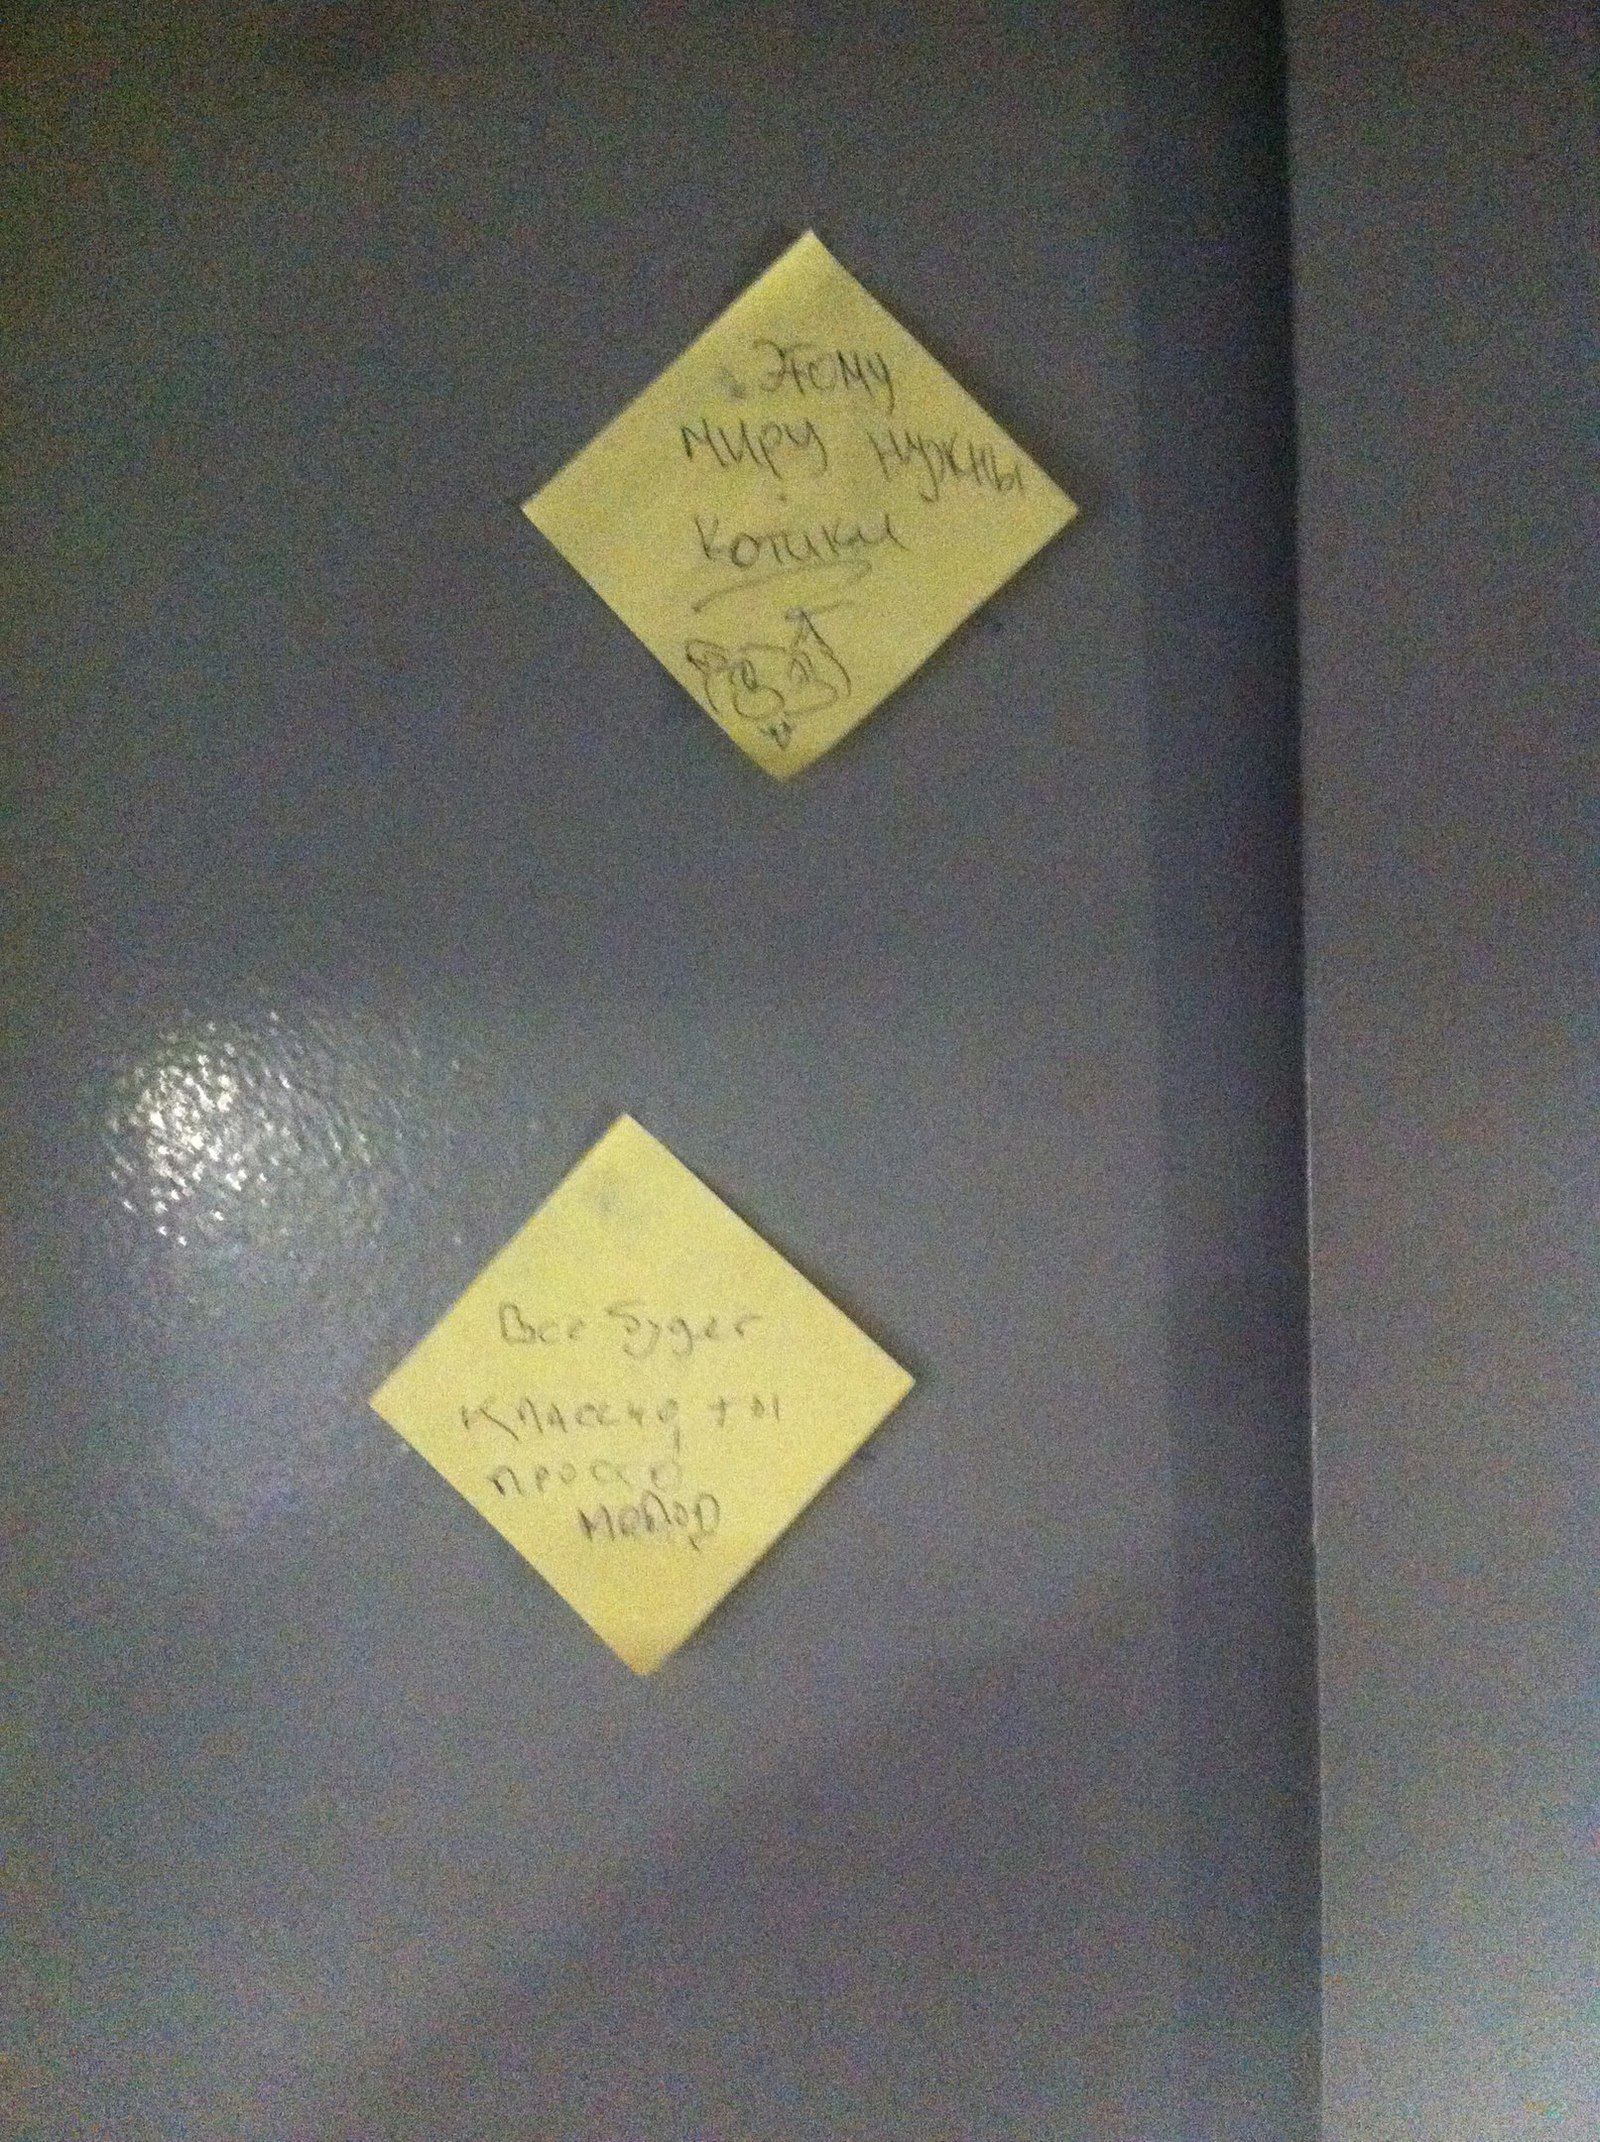 Этому
миру нужны
котики
Все будет
класснd ты
просто